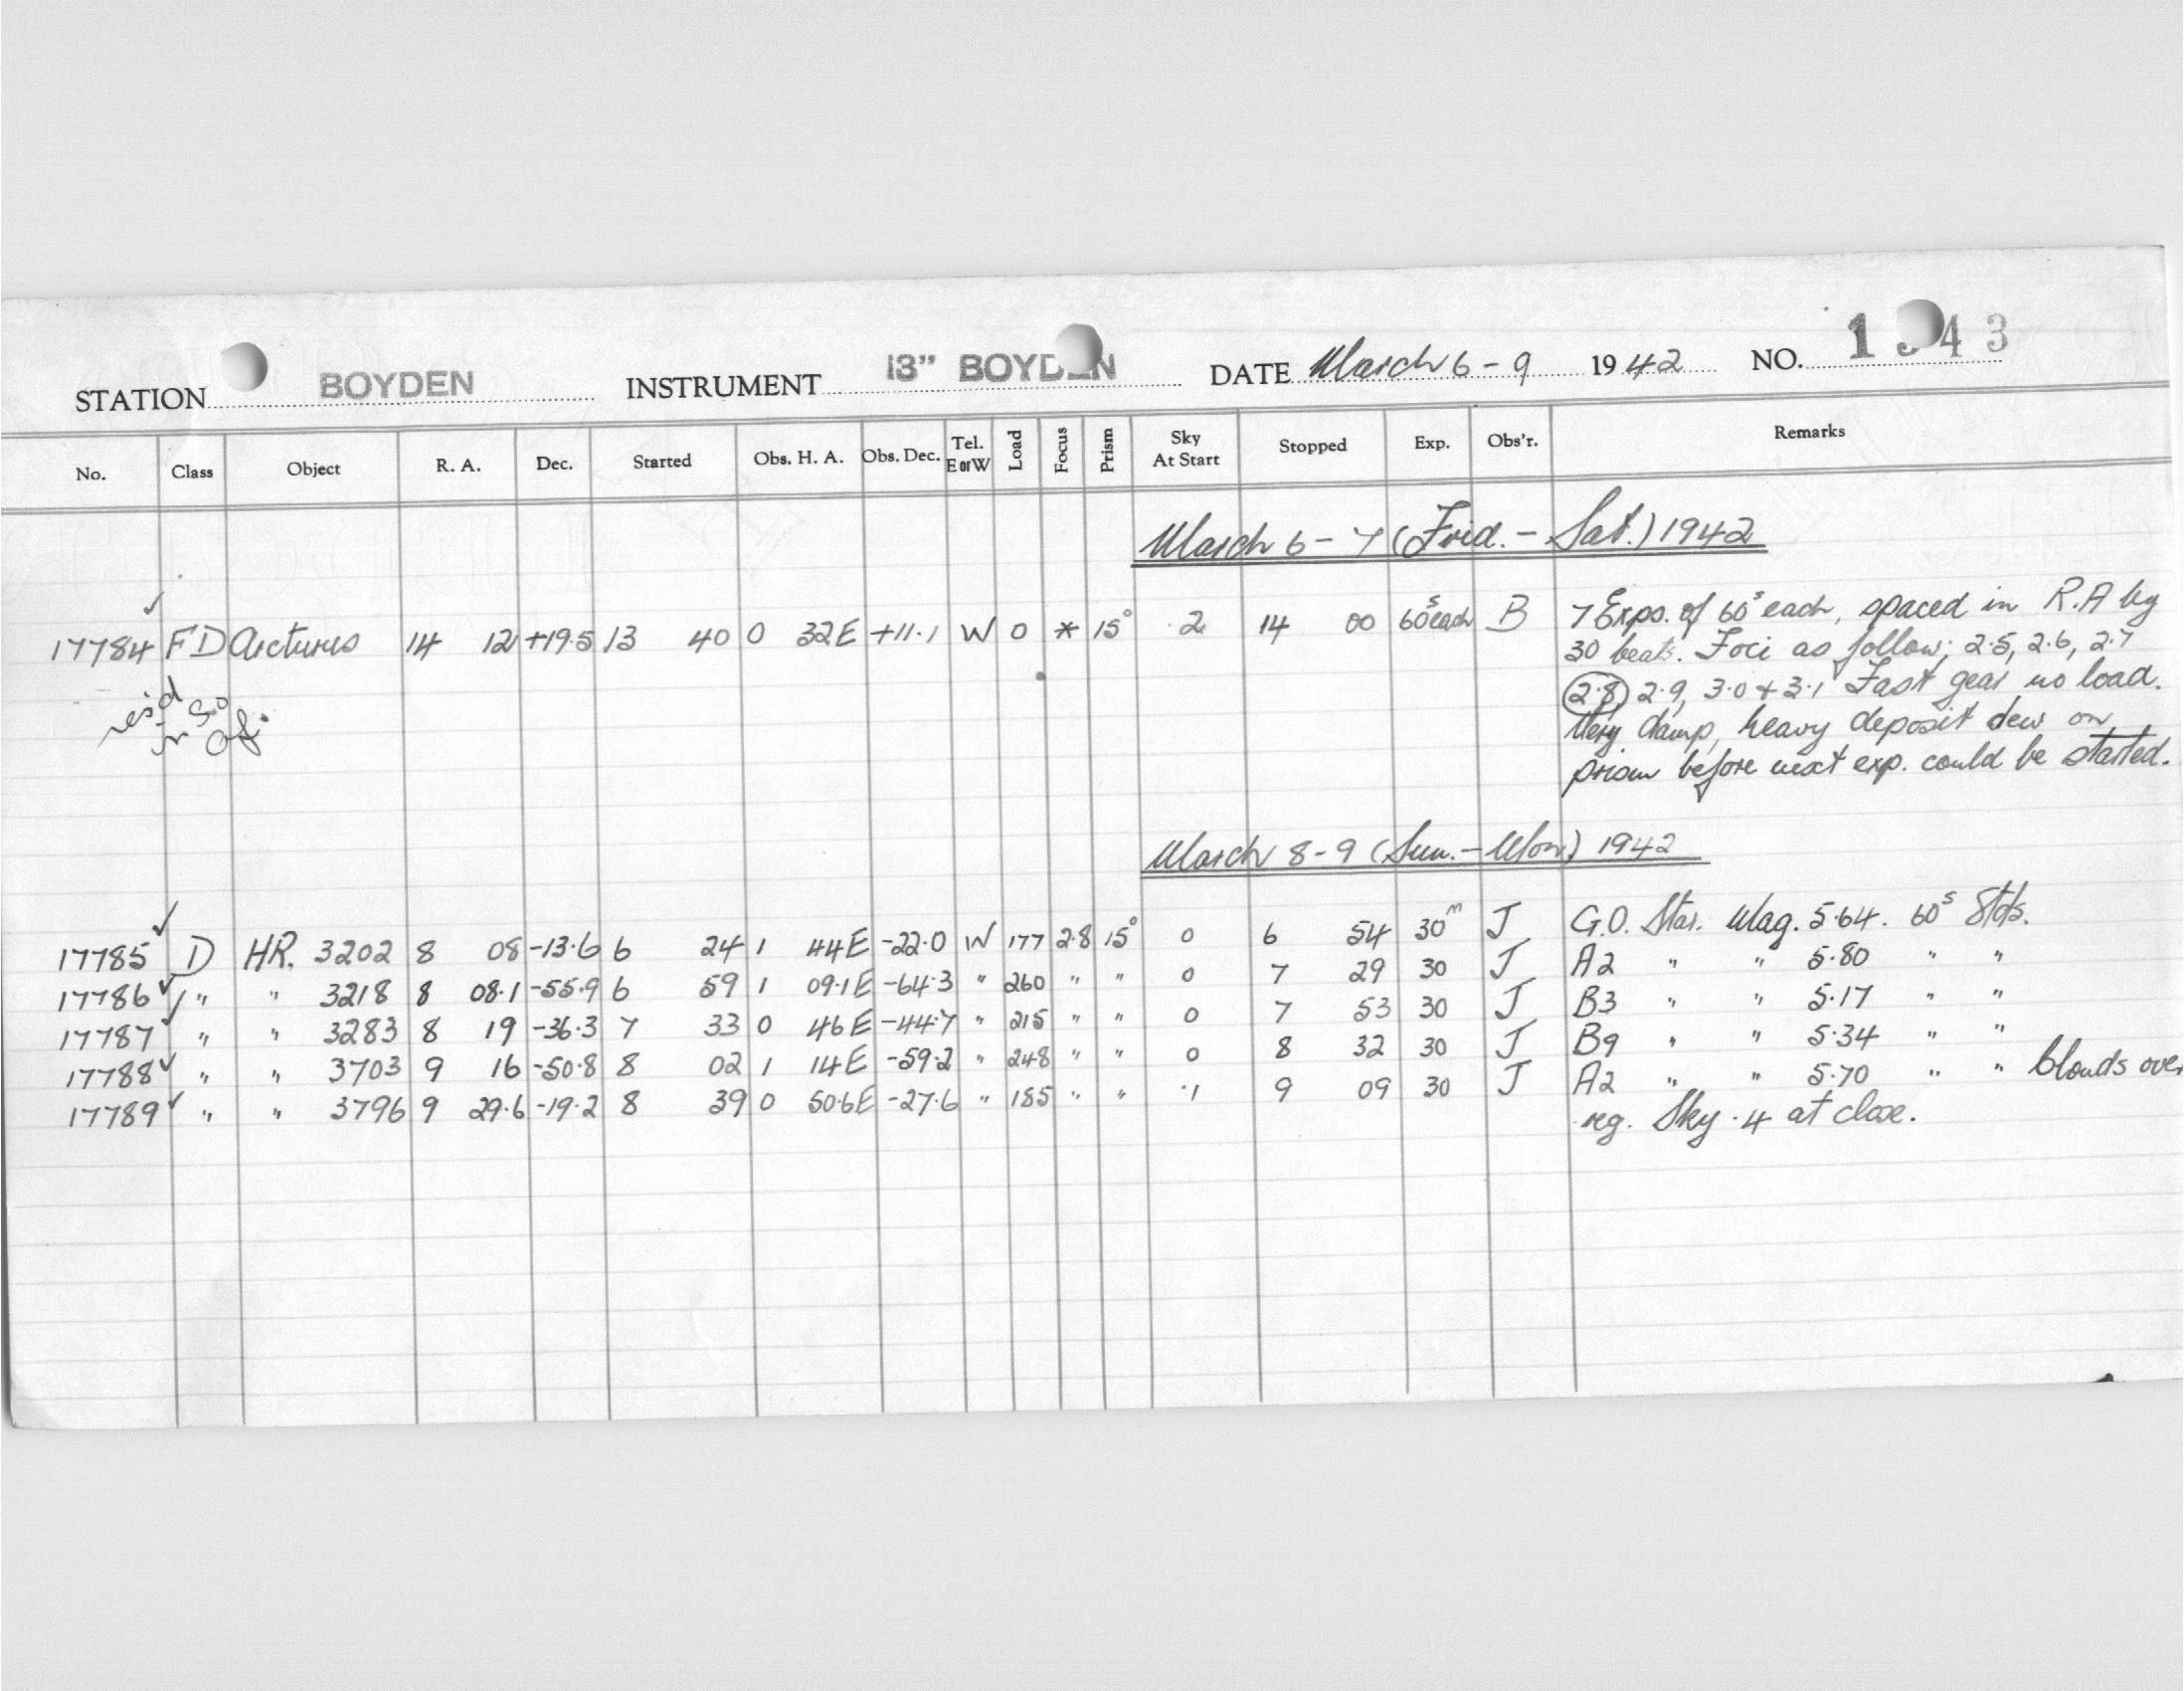 STATION BOYDEN INSTRUMENT 13" BOYDEN DATE March 6-9 1942 NO. 1 43
No. Class Object R. A. Dec. Started Obs. H. A. Obs. Dec. Tel. E or W Load Focus Prism Sky At Start Stopped Exp. Obs'r. Remarks
March 6-7 (Frid. - Sat.) 1942
17784 FD Arcturus 14 12 +19.5 13 40 0 32E +11.1 W 0 * 15° .2 14 00 60s each B 7 Exps. of 60s each, spaced in R.A by
30 beats. Foci as follow; 2.5, 2.6, 2.7
2.8, 2.9, 3.0 + 3.1 Fast gear no load.
Very damp, heavy deposit dew on
prism before next exp. could be started.
March 8-9 (Sun. - Mon) 1942
17785 D HR. 3202 8 08 -13.6 6 24 1 44E -22.0 W 177 2.8 15° 0 6 54 30m J G.O. Star. Mag. 5.64. 60s Stds.
17786 " " 3218 8 08.1 -55.9 6 59 1 09.1E -64.3 " 260 " " 0 7 29 30 J A2 " " 5.80 " "
17787 " " 3283 8 19 -36.3 7 33 0 46E -44.7 " 215 " " 0 7 53 30 J B3 " " 5.17 " "
17788 " " 3703 9 16 -50.8 8 02 1 14E -59.2 " 248 " " 0 8 32 30 J B9 " " 5.34 " "
17789 " " 3796 9 29.6 -19.2 8 39 0 50.6E -27.6 " 185 " " .1 9 09 30 J A2 " " 5.70 " " Clouds over
reg. Sky .4 at close.